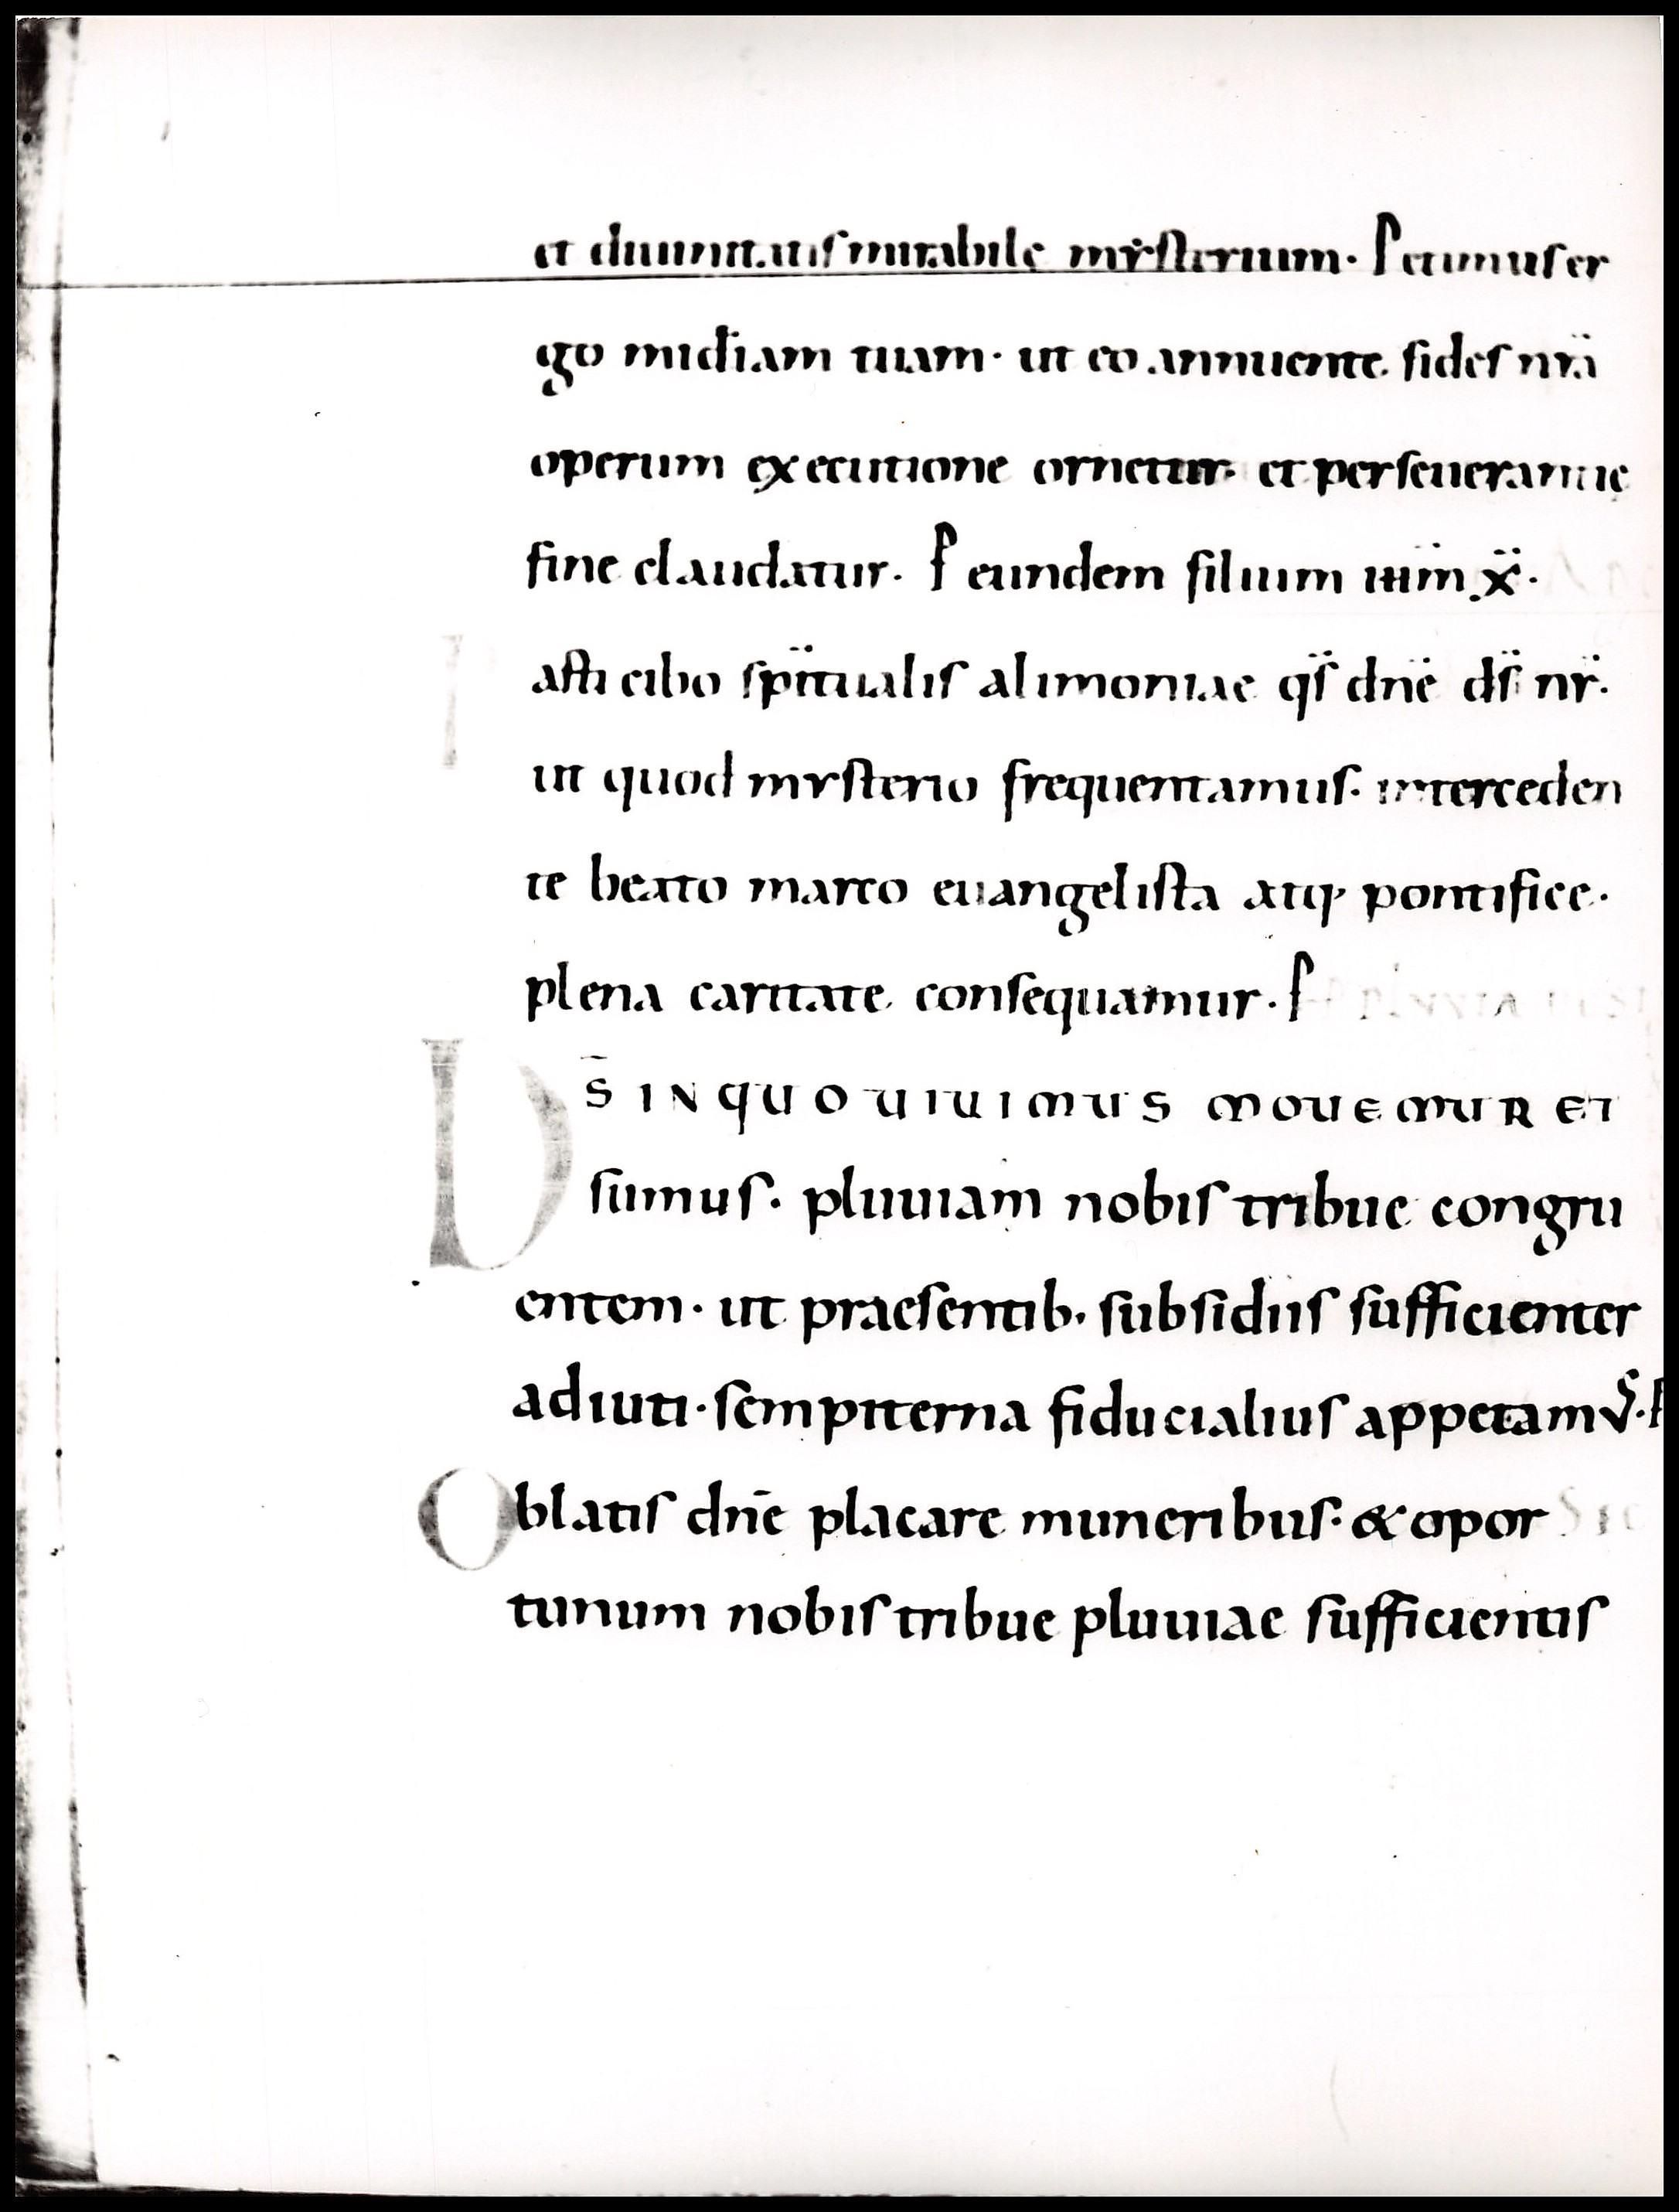 et diuinitatis mirabile mẏsterium· Petimus er
go mıd̄iam tuam· ut eo annuente fides nr̄a
operum executione ornetur· et perseuerantiȩ
fine claudatur· P eundem filium tuum x̄·
Pasti cibo spīritualis alimoniae qs̄ dnē ds̄ nr̄·
ut quod mysterio frequentamus· interceden
te beato marco euangelista atq; pontifice·
plena caritate consequamur· P
DS̄ IN QUO UIUIMUS MOUEMUR ET
sumus· pluuiam nobis tribue congru
entem· ut praesentib; subsidiis sufficienter
adiuti· sempiterna fiducialius appetamus· P
Oblatis dnē placare muneribus· & opor
tunum nobis tribue pluuiae sufficientis